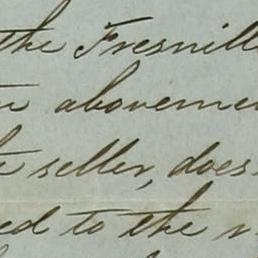 the Fresnill
abovemen
seller, does
ed to the